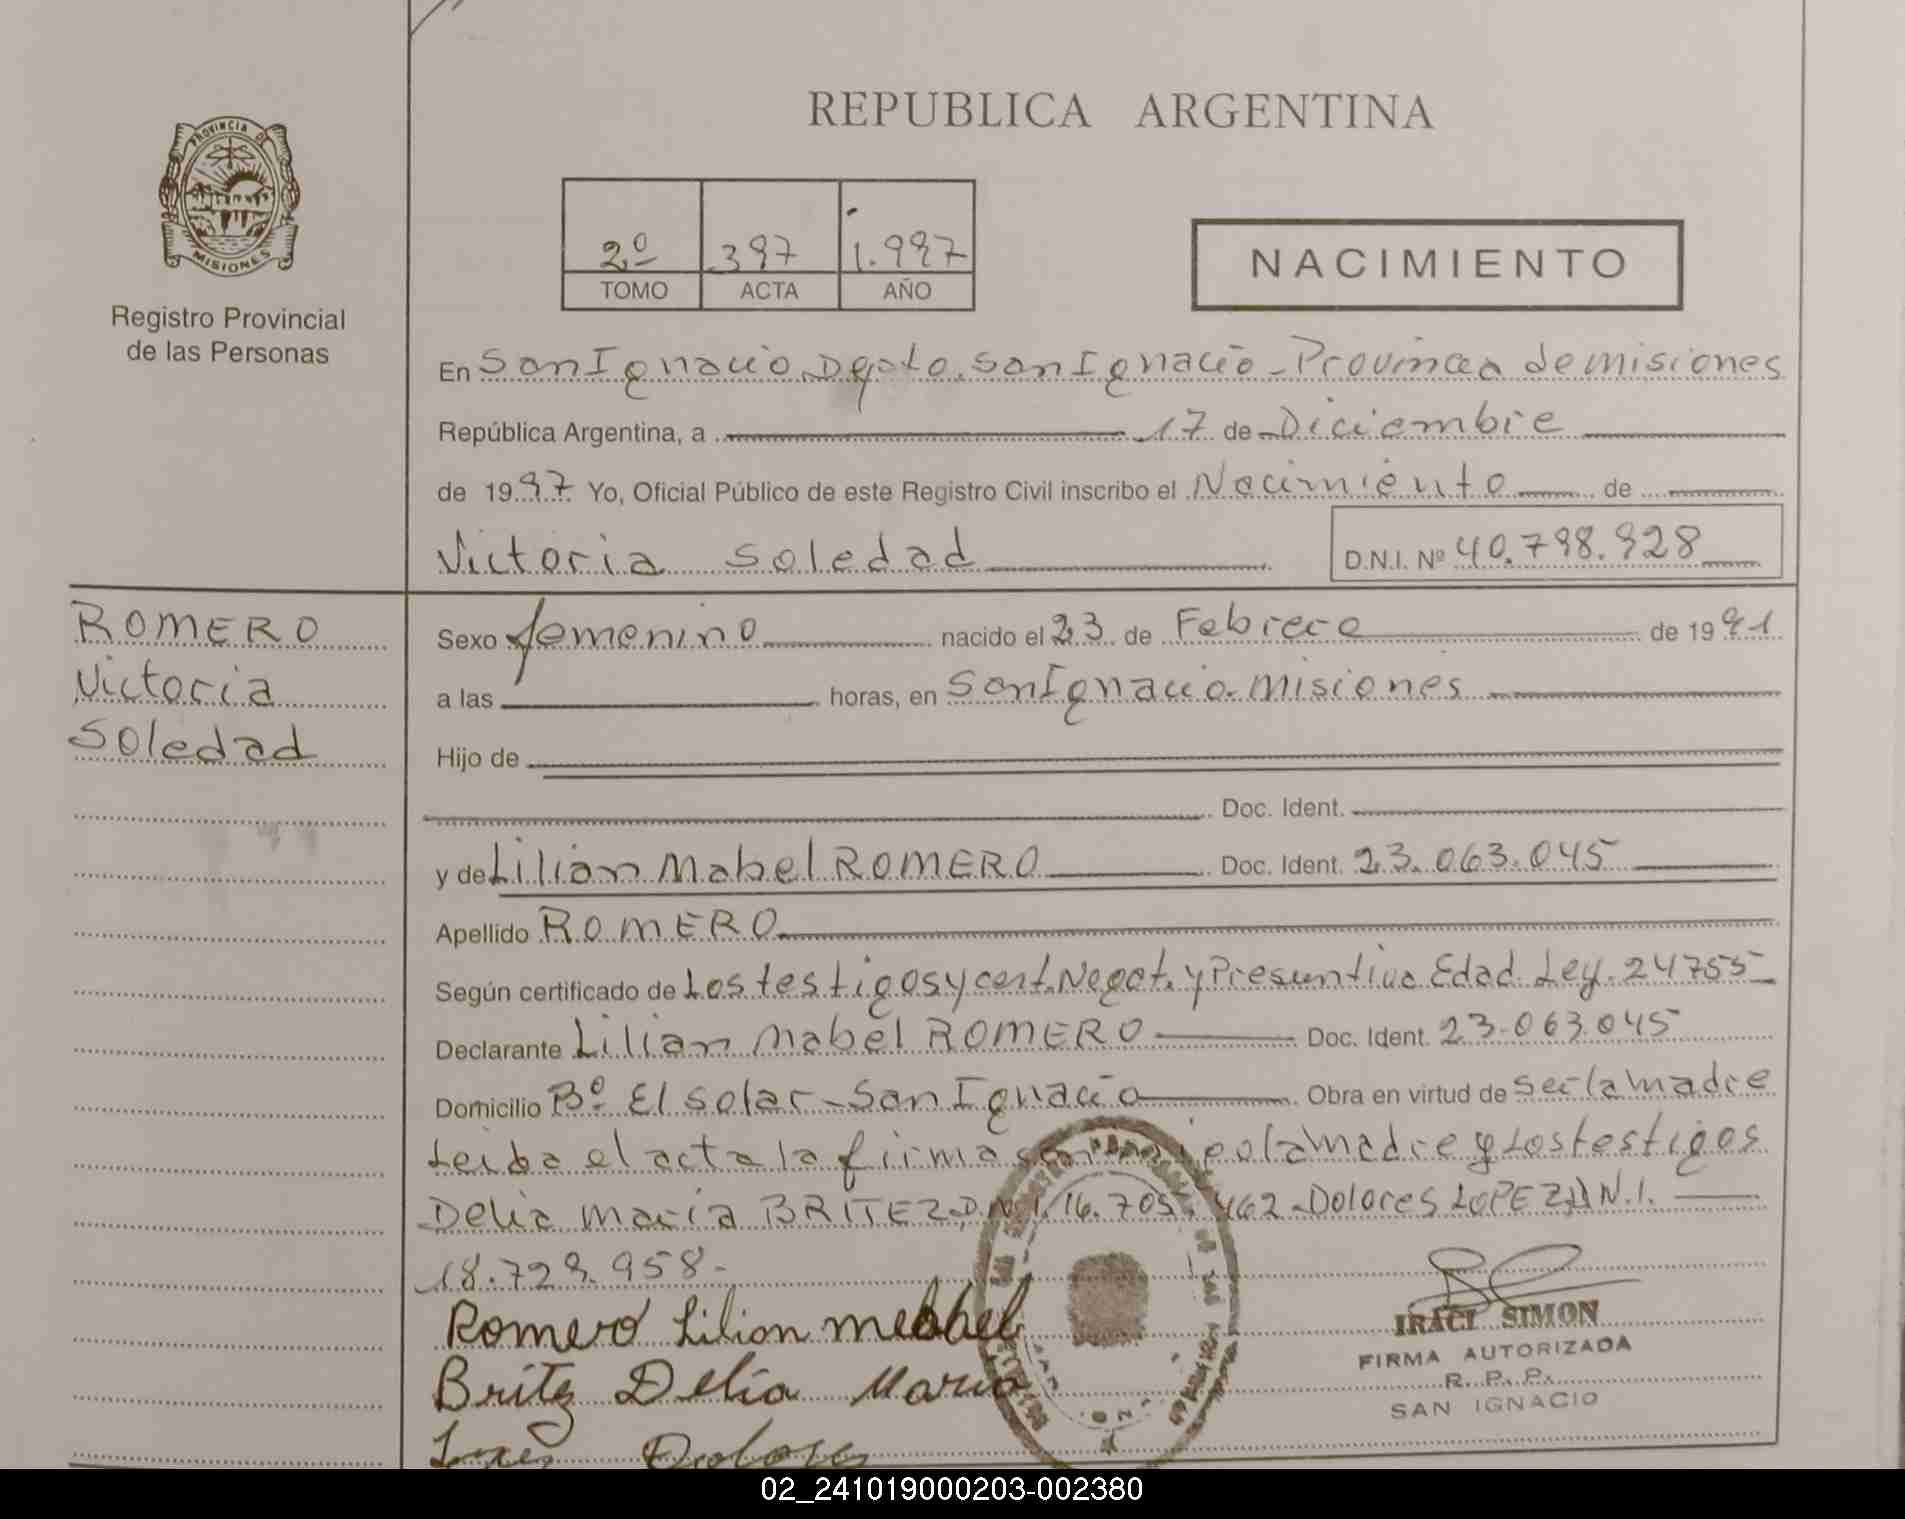 REPUBLICA ARGENTINA
PROVINCIA DE
MISIONES
Registro Provincial
de las Personas
2º 397 1.997
TOMO ACTA AÑO
NACIMIENTO
En San Ignacio Dpto. San Ignacio - Provincia de misiones
República Argentina, a 17 de Diciembre
de 1997 Yo, Oficial Público de este Registro Civil inscribo el Nacimiento de
Victoria Soledad D.N.I. Nº 40.798.928
ROMERO
Victoria
Soledad
Sexo femenino nacido el 23 de Febrero de 1991
a las horas, en San Ignacio - misiones
Hijo de
Doc. Ident.
y de Lilian Mabel ROMERO Doc. Ident. 23.063.045
Apellido ROMERO
Según certificado de Los testigos y cert. Negat. y Presuntiva Edad Ley. 24755
Declarante Lilian Mabel ROMERO Doc. Ident. 23.063.045
Domicilio Bº El solar - San Ignacio Obra en virtud de ser la madre
Leida el acta la firma la madre y Los testigos
Delia Maria BRITEZ D.N.I. 16.705.462 - Dolores LOPEZ D.N.I.
18.729.958 -
Romero Lilian
Britz Delia Maria
Dolores
IRACI SIMON
FIRMA AUTORIZADA
R. P. P.
SAN IGNACIO
02_241019000203-002380